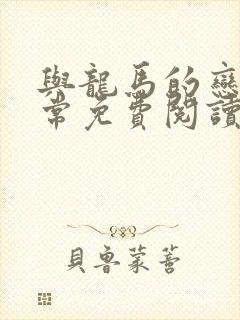 與龍馬的戀
常免費閱讀
貝魯蒙菩